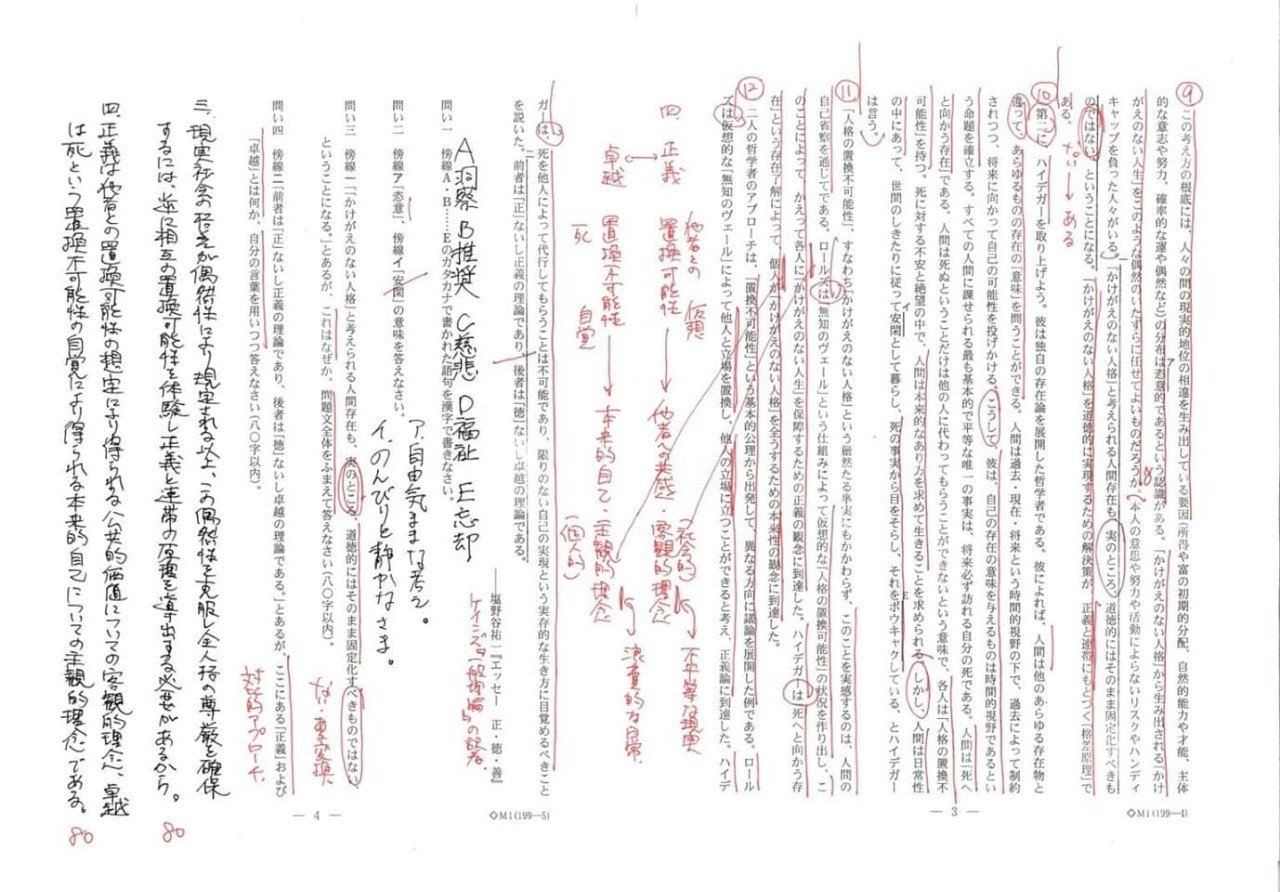 ⑨ この考え方の根底には、人々の間の現実的地位の相違を生み出している要因(所得や富の初期的分配、自然的能力や才能、主体
的な意志や努力、確率的な運や偶然など)の分布は恣意的であるという認識がある。「かけがえのない人格」から生み出される「かけ
がえのない人生」をこのような偶然のいたずらに任せてよいものだろうか。本人の意思や努力や活動によらないリスクやハンディ
キャップを負った人々がいる。「かけがえのない人格」と考えられる人間存在も、実のところ、道徳的にはそのまま固定化すべきも
のではない、ということになる。「かけがえのない人格」を道徳的に実現するための解決策が、正義と連帯にもとづく「格差原理」で
ある。
ない→ある
ア
⑩ 第二に、ハイデガーを取り上げよう。彼は独自の存在論を展開した哲学者である。彼によれば、人間は他のあらゆる存在物と
違って、あらゆるものの存在の「意味」を問うことができる。人間は過去・現在・将来という時間的視野の下で、過去によって制約
されつつ、将来に向かって自己の可能性を投げかける。こうして、彼は、自己の存在の意味を与えるものは時間的視野であるとい
う命題を確立する。すべての人間に課せられる最も基本的で平等な唯一の事実は、将来必ず訪れる自分の死である。人間は「死へ
と向かう存在」である。人間は死ぬということだけは他の人に代わってもらうことができないという意味で、各人は「人格の置換不
可能性」を持つ。死に対する不安と絶望の中で、人間は本来的なあり方を求めて生きることを求められる。しかし、人間は日常性
の中にあって、世間のしきたりに従って安閑として暮らし、死の事実から目をそらし、それをボウキャクしている、とハイデガー
は言う。
イ
E
⑪ 「人格の置換不可能性」、すなわち「かけがえのない人格」という厳然たる事実にもかかわらず、このことを実感するのは、人間の
自己省察を通じてである。ロールズは「無知のヴェール」という仕組みによって仮想的な「人格の置換可能性」の状況を作り出し、こ
のことによって、かえって各人に「かけがえのない人生」を保障するための正義の観念に到達した。ハイデガーは「死へと向かう存
在」という存在了解によって、個人が「かけがえのない人格」を全うするための本来性の観念に到達した。
⑫ 二人の哲学者のアプローチは、「置換不可能性」という基本的公理から出発して、異なる方向に議論を展開した例である。ロール
ズは仮想的な「無知のヴェール」によって他人と立場を置換し、他人の立場に立つことができると考え、正義論に到達した。ハイデ
— 3 —
◇M1(199—4)
四、正義 他者との仮想 置換可能性→他者への共感・客観的理念(社会的)→不平等な現実
卓越 死 置換不可能性 自覚→本来的自己・主観的理念(個人的)→
ガーは、死を他人によって代行してもらうことは不可能であり、限りのない自己の実現という実存的な生き方に目覚めるべきこと
を説いた。前者は「正」ないし正義の理論であり、後者は「徳」ないし卓越の理論である。
二
——塩野谷祐一『エッセー 正・徳・善』
ケインズ『一般理論』の訳者。
問い一 傍線A・B……Eのカタカナで書かれた語句を漢字で書きなさい。
A洞察 B推奨 C慈悲 D福祉 E忘却
問い二 傍線ア「恣意」、傍線イ「安閑」の意味を答えなさい。
ア、自由気ままな考え。
イ、のんびりと静かなさま。
問い三 傍線一「「かけがえのない人格」と考えられる人間存在も、実のところ、道徳的にはそのまま固定化すべきものではない
ということになる。」とあるが、これはなぜか。問題文全体をふまえて答えなさい(八〇字以内)。
問い四 傍線二「前者は「正」ないし正義の理論であり、後者は「徳」ないし卓越の理論である。」とあるが、ここにある「正義」および
「卓越」とは何か、自分の言葉を用いつつ答えなさい(八〇字以内)。
対比的アプローチ
三、現実社会の格差が偶然性により規定される以上、この偶然性を克服し全人格の尊厳を確保
するには、逆に相互の置換可能性を体験し正義と連帯の原理を導出する必要があるから。
80
四、正義は他者との置換可能性の想定により得られる公共的価値についての客観的理念、卓越
は死という置換不可能性の自覚により得られる本来的自己についての主観的理念である。
80
— 4 —
◇M1(199—5)